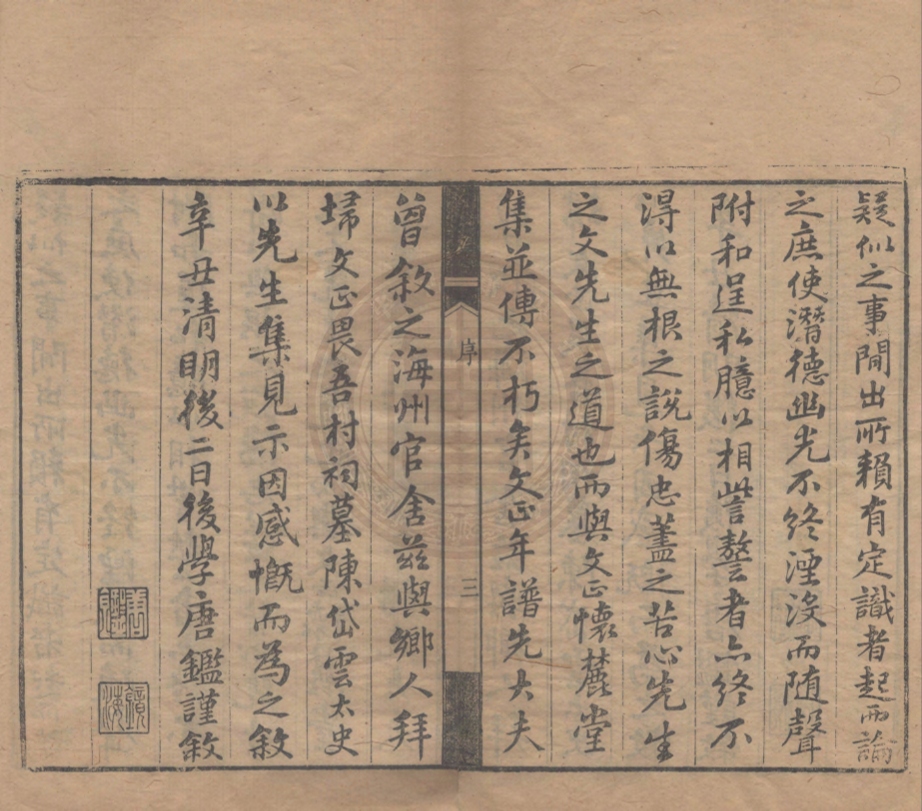 疑似之事間出所賴有定識者起而論
之庶使潛德幽光不終湮沒而随聲
附和逞私臆以相訾謷者亦終不
淂以無根之說傷忠藎之苦心先生
之文先生之道也而與文正懷麓堂
集並傳不朽矣文正年譜先大夫
序
三
曾敘之海州官舍茲與鄉人拜
埽文正畏吾村祠墓陳岱雲太史
以先生集見示因感慨而為之敘
辛丑清明後二日後學唐鑑謹敘
唐鑑
鏡海